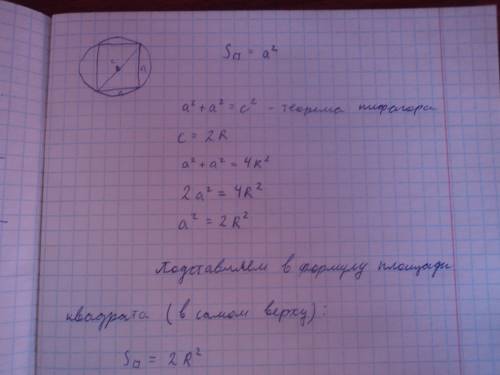 c
a
a
S□ = a²
a² + a² = c² - теорема пифагора
c = 2R
a² + a² = 4R²
2a² = 4R²
a² = 2R²
Подставляем в формулу площади
квадрата (в самом верху):
S□ = 2R²